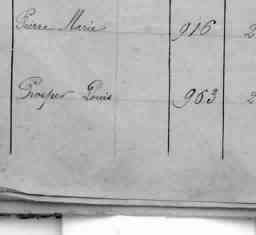 Pierre Marie 916 2
Prosper Louis 963 2